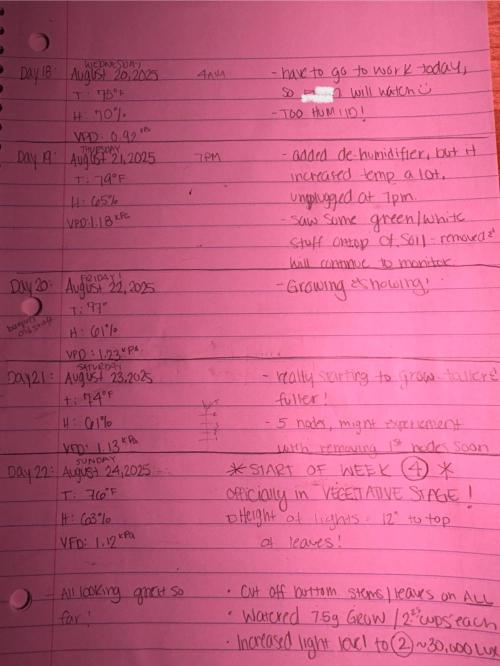 WEDNESDAY
Day 18: August 20, 2025 4AM - have to go to work today,
T: 75°F so will watch ☺
H: 70% - TOO HUMID!
VPD: 0.92 kPa
THURSDAY
Day 19: August 21, 2025 7PM - added de-humidifier, but it
T: 79°F increased temp a lot.
H: 65% unplugged at 7pm.
VPD: 1.18 kPa - saw some green/white
stuff ontop of soil - removed &
will continue to monitor
FRIDAY!
Day 20: August 22, 2025 - Growing & showing!
T: 77°
H: 61%
VPD: 1.23 kPa
SATURDAY
Day 21: August 23, 2025 - really starting to grow taller &
T: 74°F fuller!
H: 61% - 5 nodes, might experiement
VPD: 1.13 kPa with removing 1st nodes soon
SUNDAY
Day 22: August 24, 2025 * START OF WEEK 4 *
T: 76°F officially in VEGETATIVE STAGE!
H: 63% Height of lights = 12" to top
VPD: 1.12 kPa of leaves!
All looking great so • Cut off bottom stems/leaves on ALL
far! • Watered 7.5g Grow / 2 cups each
• Increased light level to 2 ~30,000 Lux